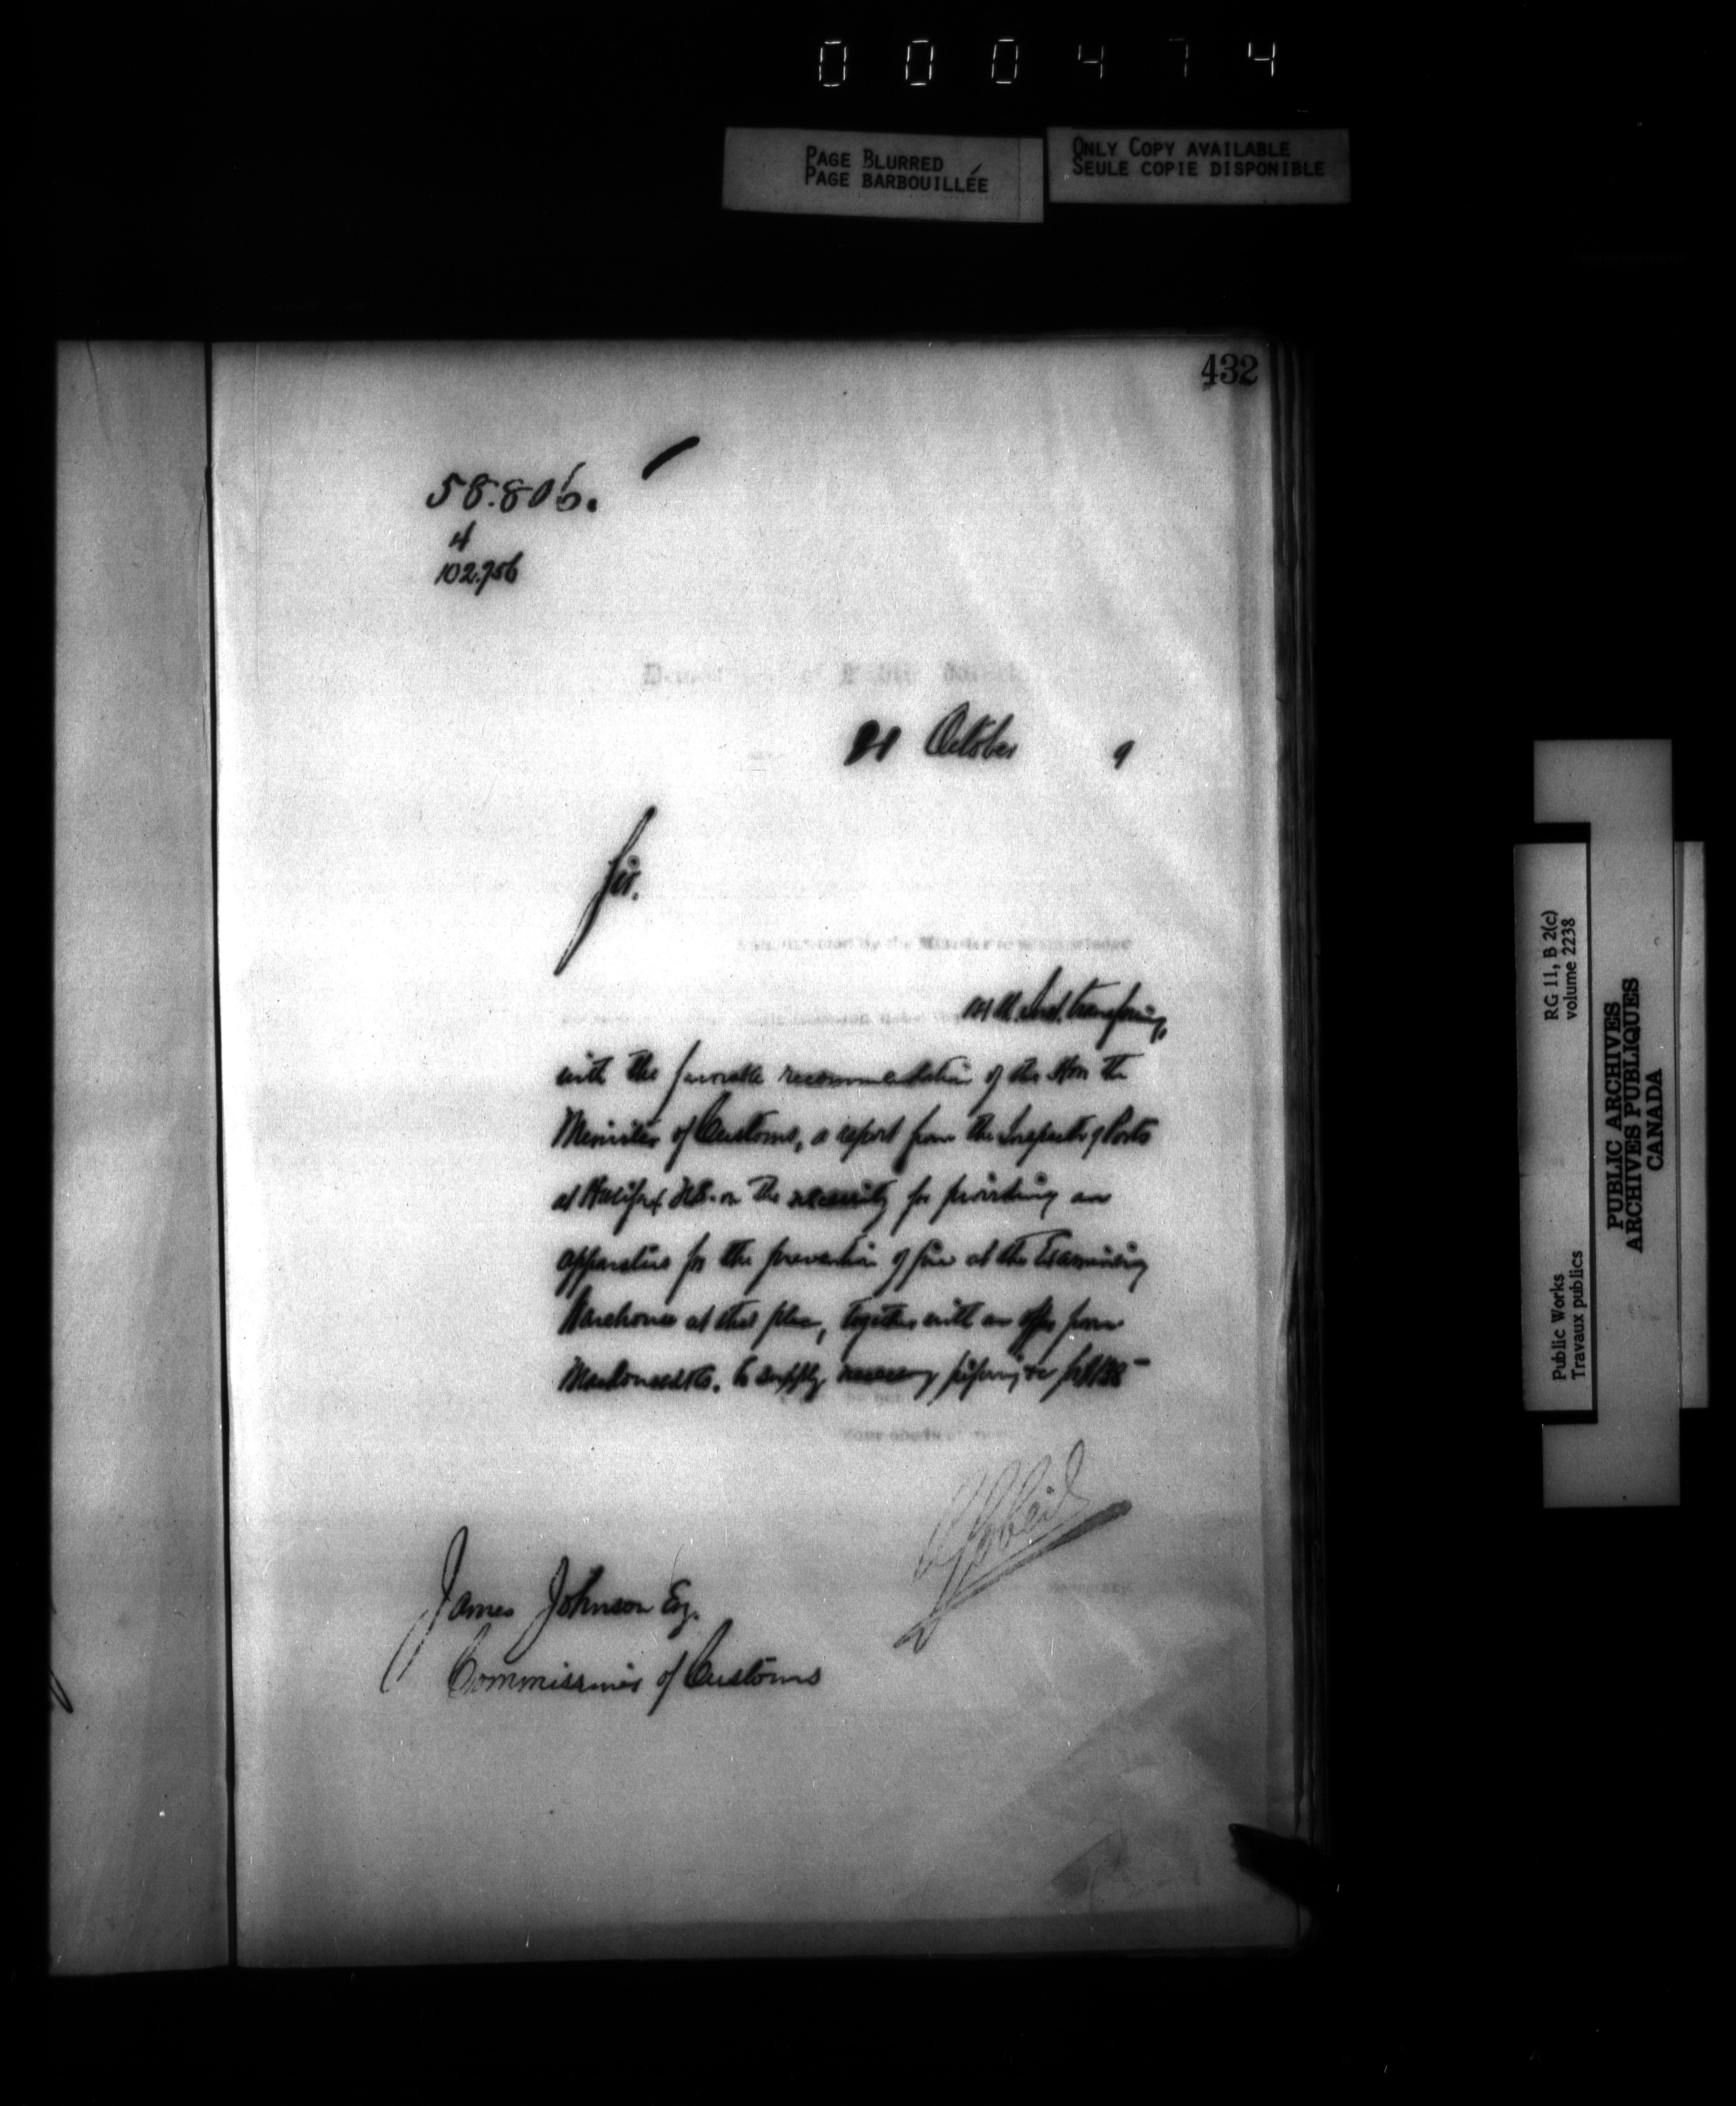 000474
PAGE BLURRED
PAGE BARBOUILLÉE
ONLY COPY AVAILABLE
SEULE COPIE DISPONIBLE
432
58.806.
4
102.956
21 October 9
Sir.
by the Minister to
inst. transferring,
with the favorable recommendation of the Hon the
Minister of Customs, a report from the Inspector of Ports
at Halifax N.S. on the necessity for providing an
apparatus for the prevention of fire at the Examining
Warehouse at that place, together with an offer from
to supply necessary piping &c for
James Johnson Esq.
Commissioner of Customs
RG 11, B 2(c)
volume 2238
Public Works
Travaux publics
PUBLIC ARCHIVES
ARCHIVES PUBLIQUES
CANADA